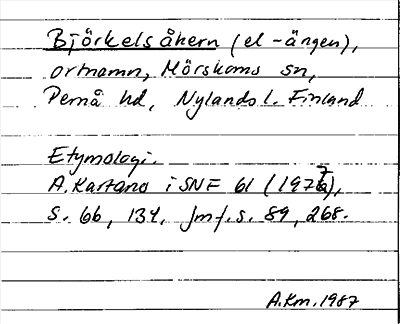 Björkelsåkern (el -ängen),
ortnamn, Mörskoms sn,
Pernå hd, Nylands l. Finland
Etymologi.
A. Kartano i SNF 61 (1977),
s. 66, 134. Jmf. s. 89, 268.
A.Km. 1987